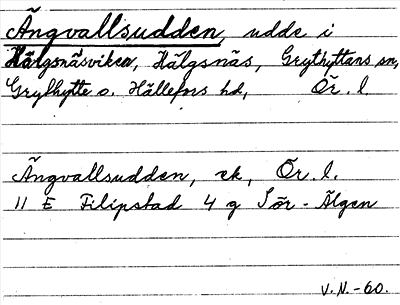 Ängvallsudden, udde i
Hälgsnäsviken, Hälgsnäs, Grythyttans sn,
Grythytte o. Hällefors hd, Ör. l.
Ängvallsudden, ek, Ör. l.
11 E Filipstad 4 g Sör-Älgen
V.N.-60.